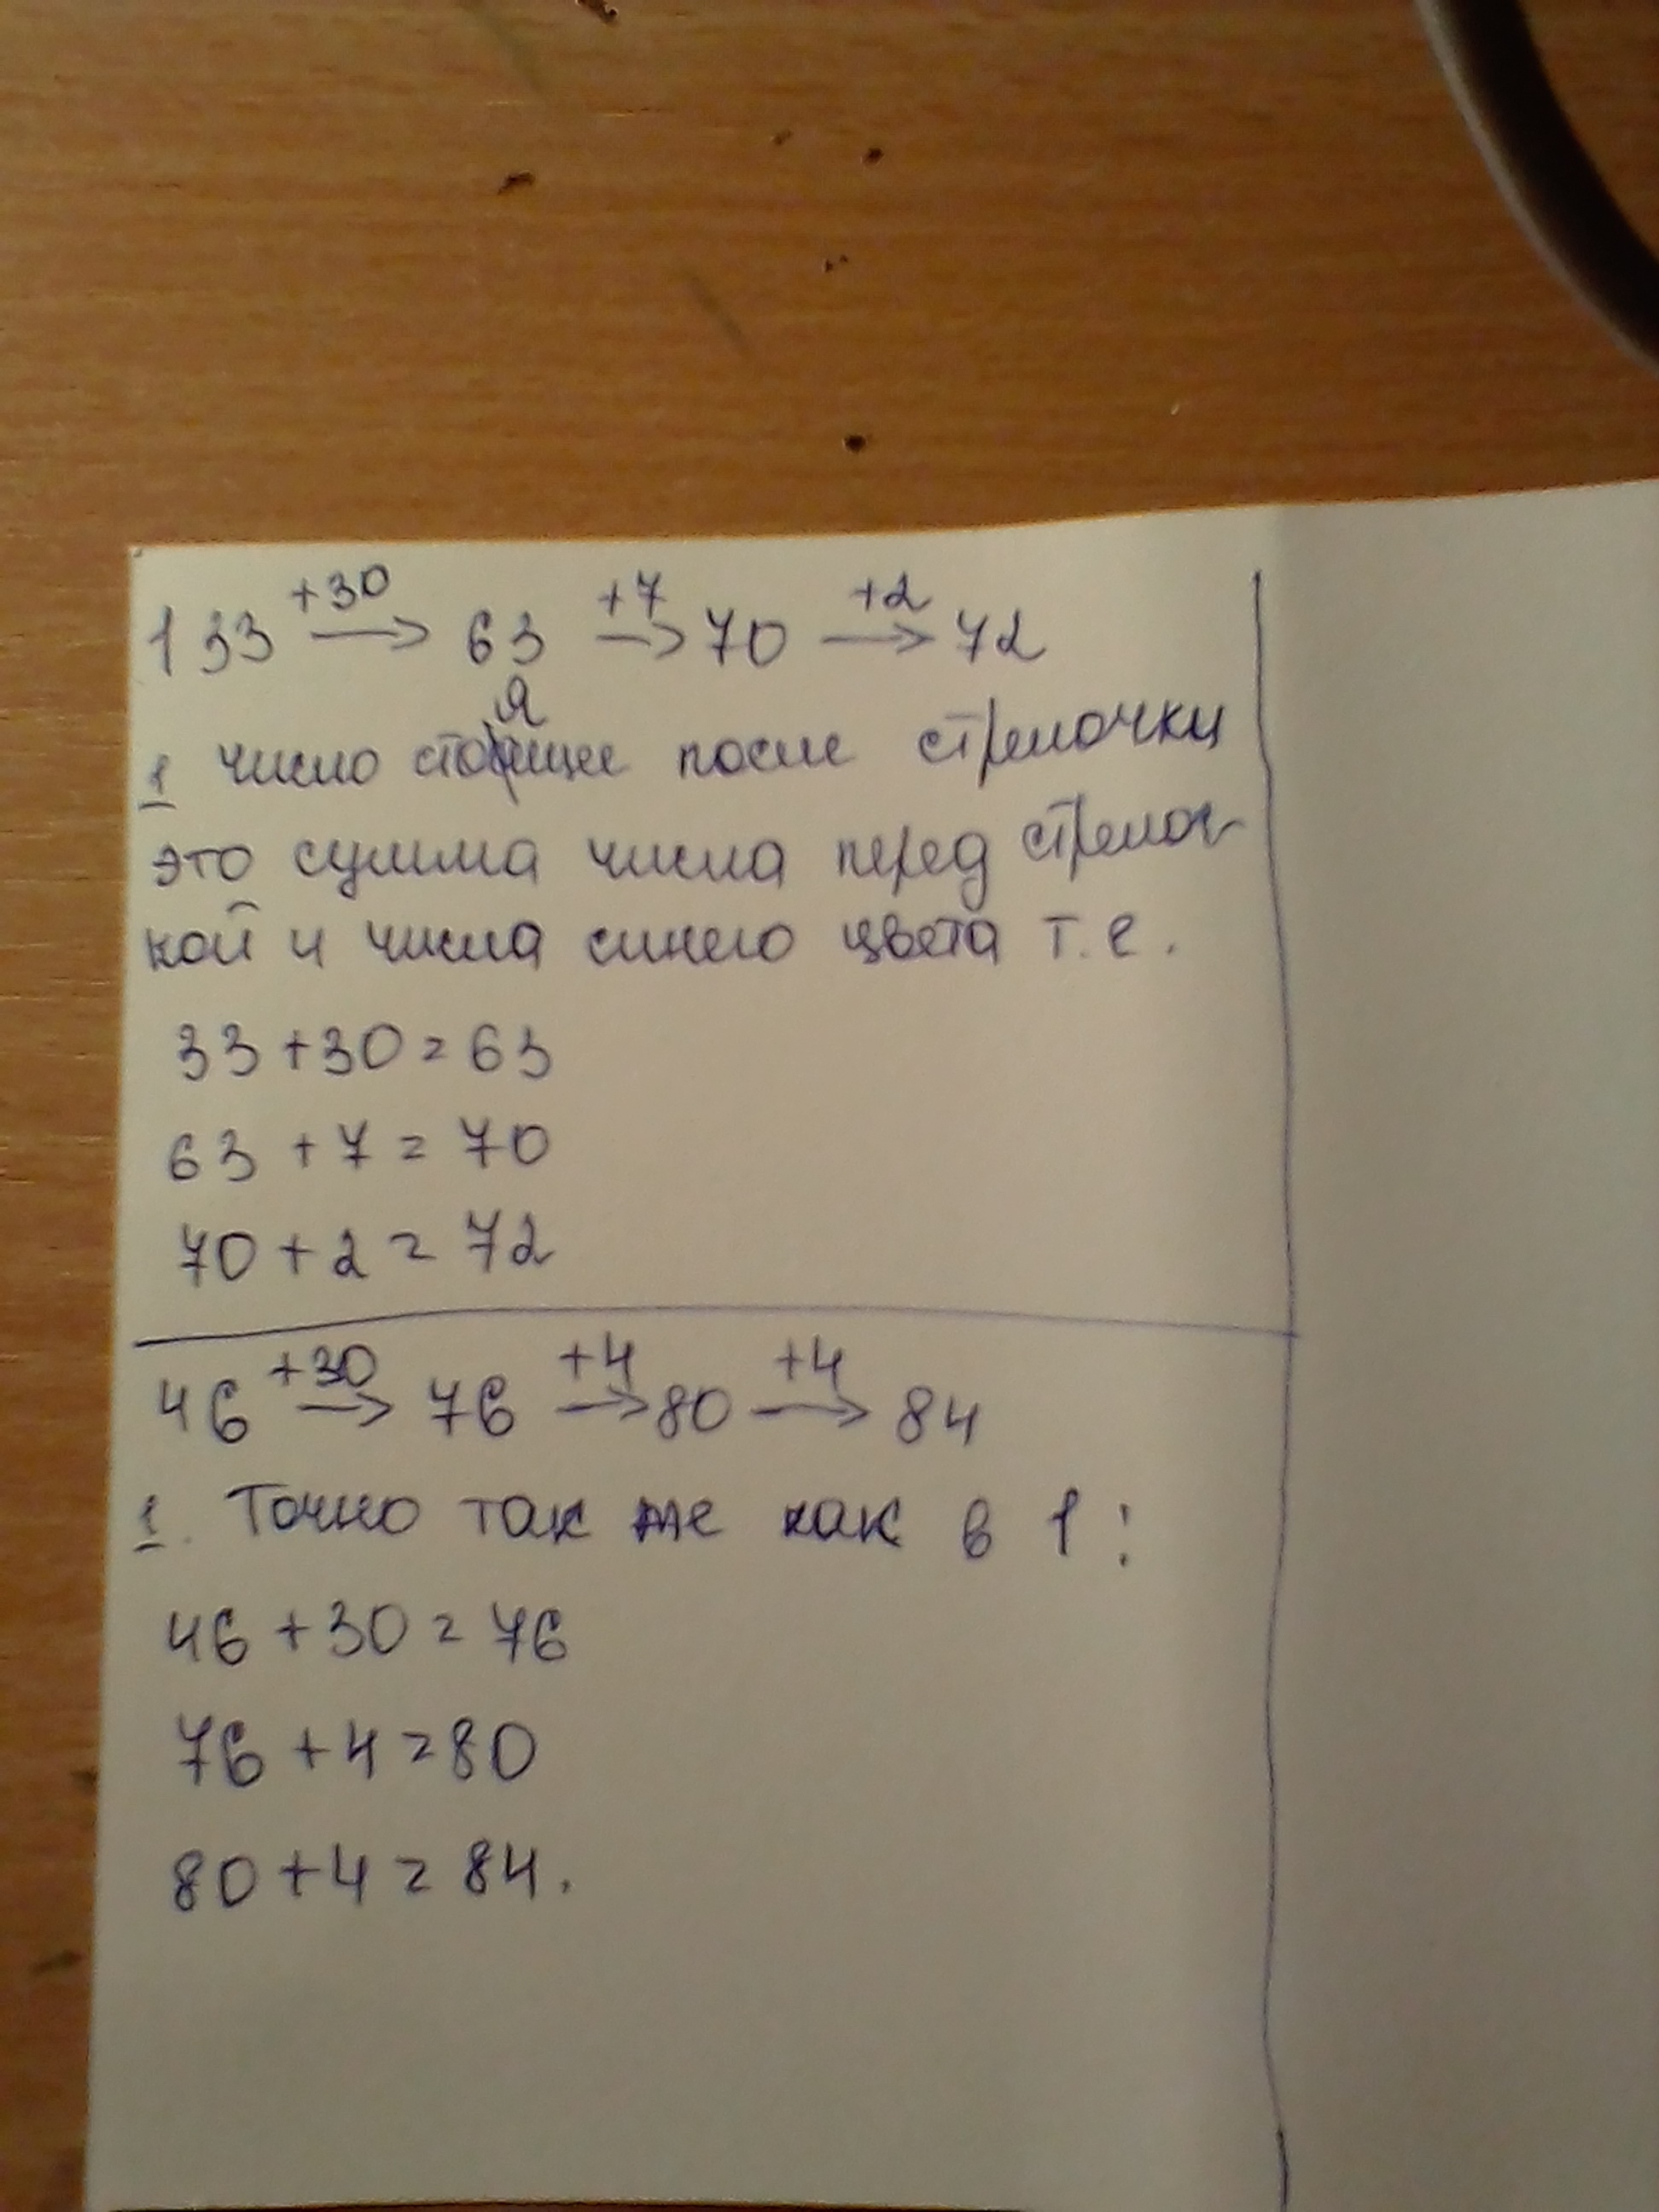 +30 +7 +2
1 33 → 63 → 70 → 72
я
1 число стоящее после стрелочки
это сумма числа перед стрелоч-
кой и числа синего цвета т.е.
33+30=63
63+7=70
70+2=72
+30 +4 +4
46 → 76 → 80 → 84
1. Точно так же как в 1:
46+30=76
76+4=80
80+4=84.